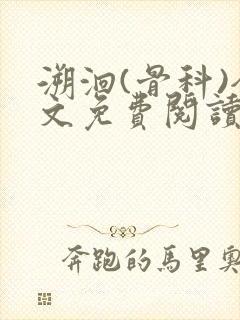 溯洄(骨科)
文免費閱讀
奔跑的馬里奧